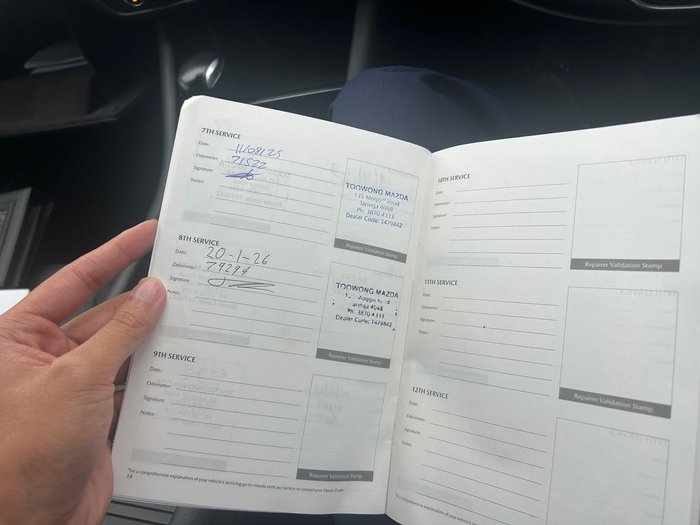 7TH SERVICE
Date: 11/08/25
Odometer: 71522
Signature:
Notes:
TOOWONG MAZDA
Taringa 4068
Ph: 3870 4333
Dealer Code: 1479842
Repairer Validation Stamp
8TH SERVICE
Date: 20-1-26
Odometer: 79294
Signature:
Notes:
TOOWONG MAZDA
Ph: 3870 4333
Dealer Code: 1479842
Repairer Validation Stamp
9TH SERVICE
Date:
Odometer:
Signature:
Notes:
Repairer Validation Stamp
*For a comprehensive explanation of your vehicle's servicing go to mazda.com.au/service or contact your Mazda Dealer.
14
10TH SERVICE
Date:
Odometer:
Signature:
Notes:
Repairer Validation Stamp
11TH SERVICE
Date:
Odometer:
Signature:
Notes:
Repairer Validation Stamp
12TH SERVICE
Date:
Odometer:
Signature:
Notes: